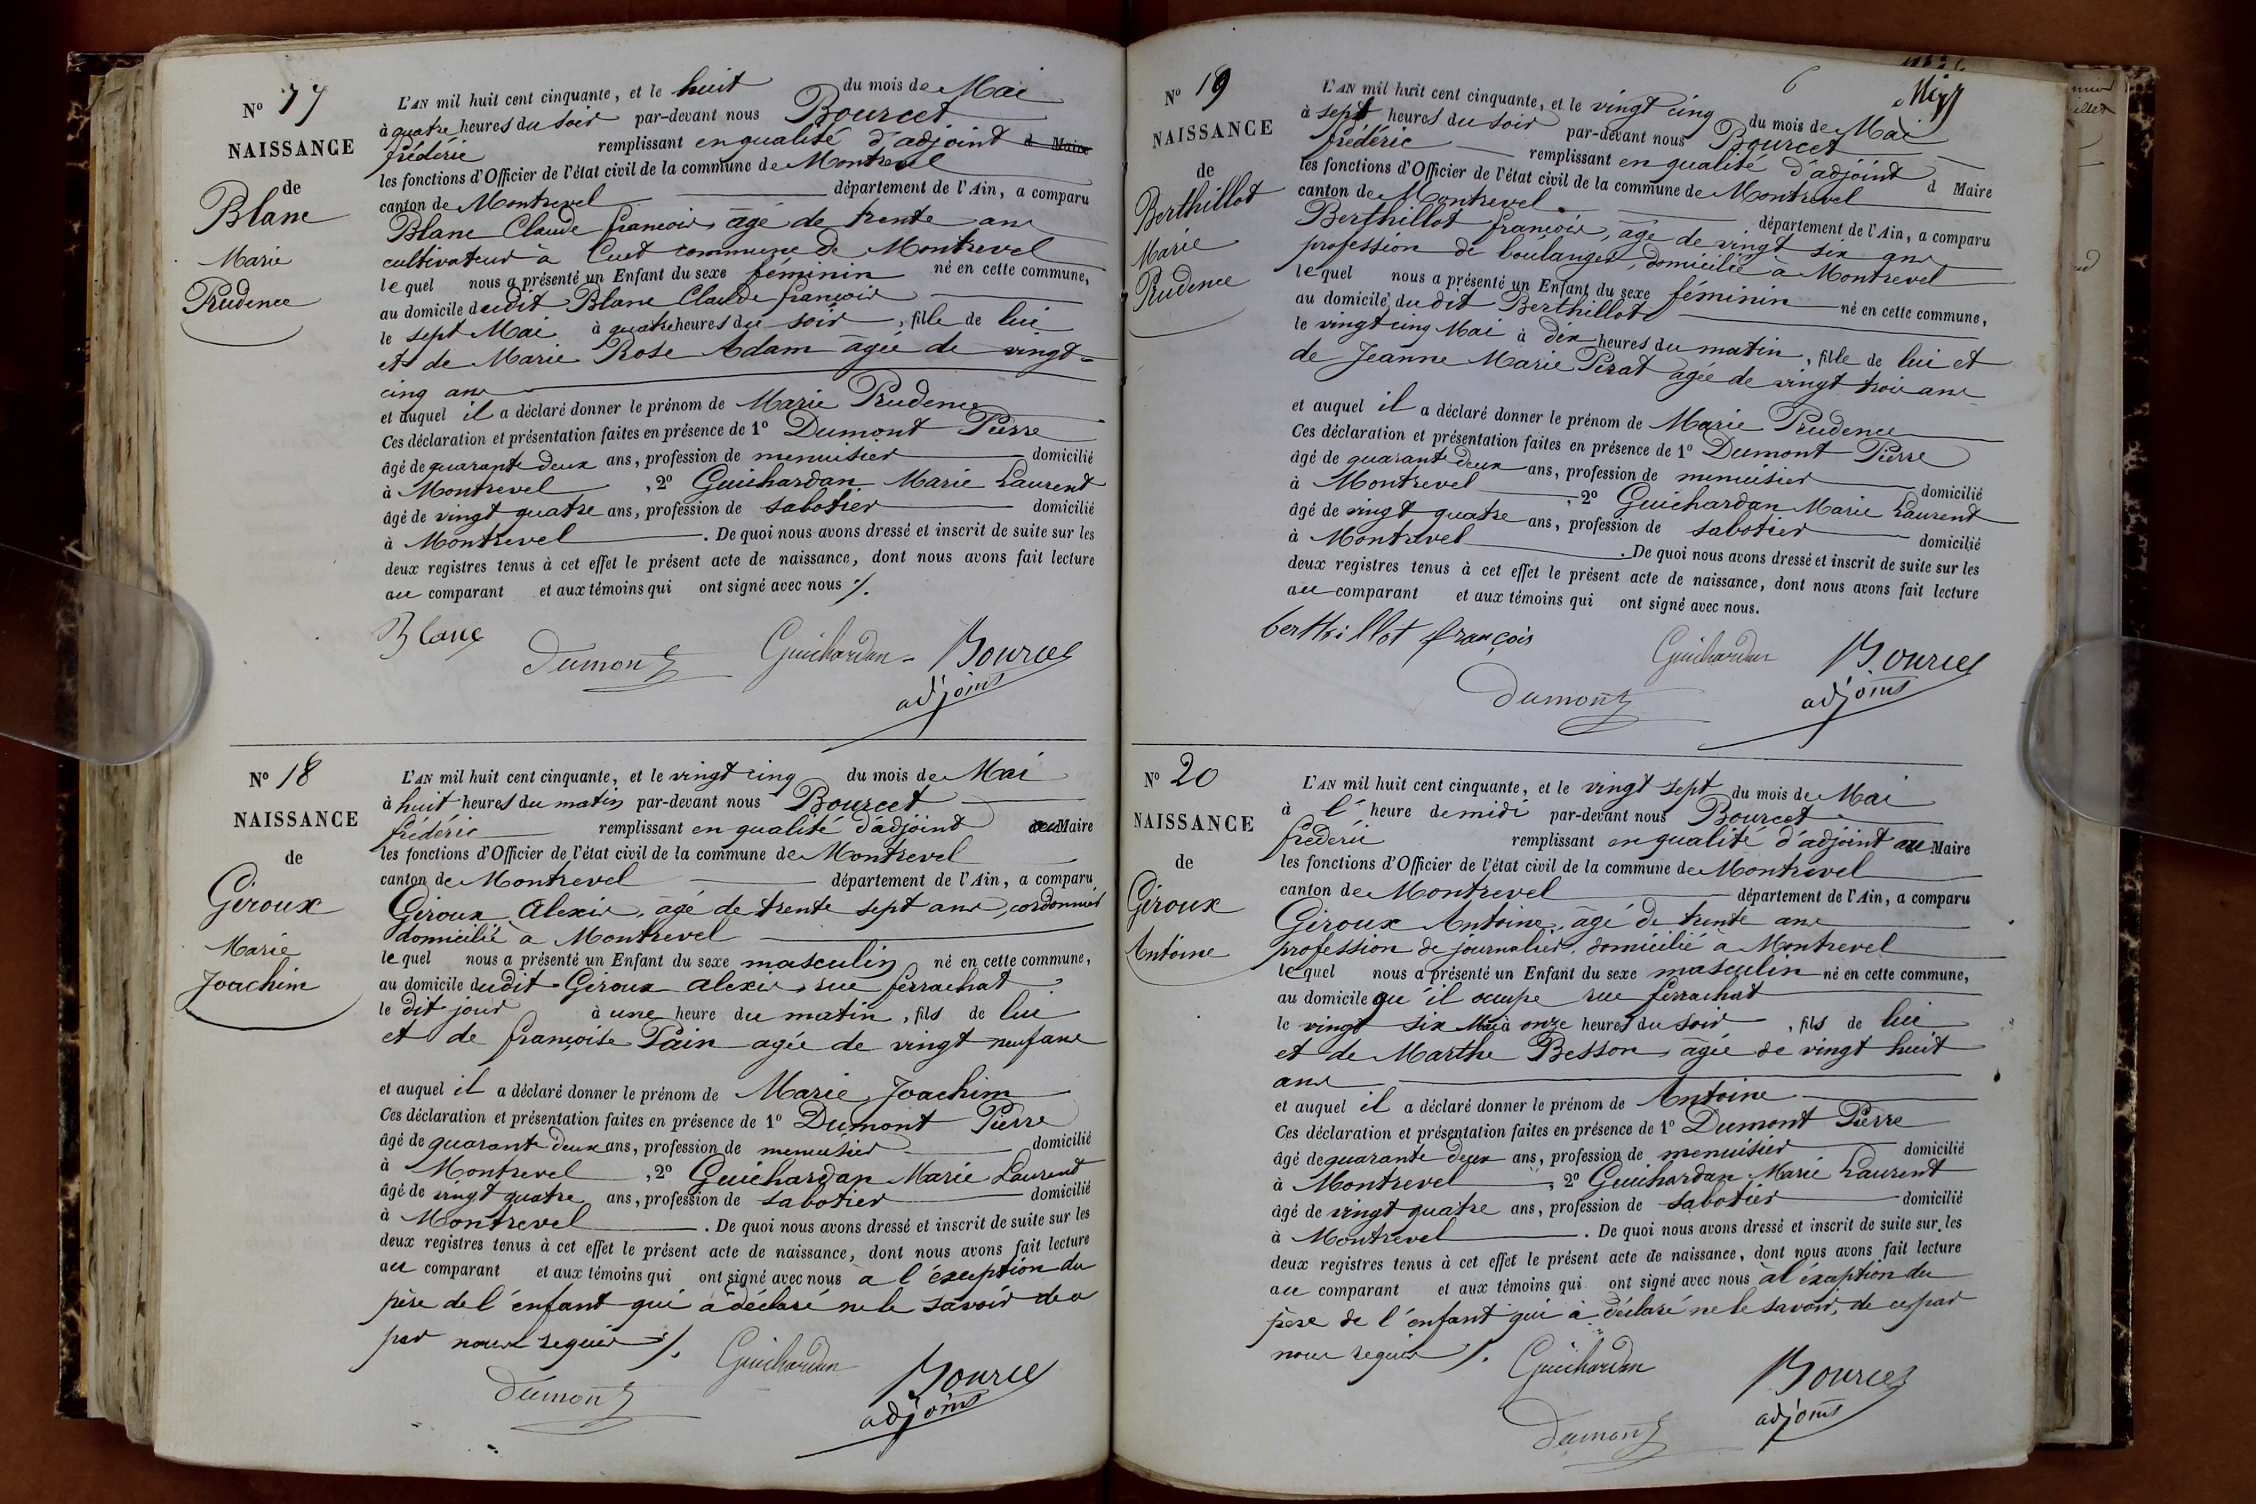 N° 17
NAISSANCE
de
Blanc
Marie
Prudence
L'AN mil huit cent cinquante, et le huit du mois de Mai
à quatre heures du soir par-devant nous Bourcet
frédéric remplissant en qualité d'adjoint d Maire
les fonctions d'Officier de l'état civil de la commune de Montrevel
canton de Montrevel département de l'Ain, a comparu
Blanc Claude françois, âgé de trente ans
cultivateur à Cuet commune de Montrevel
lequel nous a présenté un Enfant du sexe féminin né en cette commune,
au domicile dudit Blanc Claude françois
le sept Mai à quatre heures du soir, fille de lui
et de Marie Rose Adam âgée de vingt-
cinq ans
et auquel il a déclaré donner le prénom de Marie Prudence
Ces déclaration et présentation faites en présence de 1° Dumont Pierre
âgé de quarante deux ans, profession de menuisier domicilié
à Montrevel, 2° Guichardan Marie Laurent
âgé de vingt quatre ans, profession de sabotier domicilié
à Montrevel. De quoi nous avons dressé et inscrit de suite sur les
deux registres tenus à cet effet le présent acte de naissance, dont nous avons fait lecture
au comparant et aux témoins qui ont signé avec nous ./.
Blanc
Dumont Guichardan Bourcet
adjoint
N° 18
NAISSANCE
de
Giroux
Marie
Joachim
L'AN mil huit cent cinquante, et le vingt cinq du mois de Mai
à huit heures du matin par-devant nous Bourcet
frédéric remplissant en qualité d'adjoint au Maire
les fonctions d'Officier de l'état civil de la commune de Montrevel
canton de Montrevel département de l'Ain, a comparu
Giroux Alexis, âgé de trente sept ans, cordonnier
domicilié à Montrevel
lequel nous a présenté un Enfant du sexe masculin né en cette commune,
au domicile dudit Giroux alexis, rue ferrachat
le dit jour à une heure du matin, fils de lui
et de françoise Pain agée de vingt neuf ans
et auquel il a déclaré donner le prénom de Marie Joachim
Ces déclaration et présentation faites en présence de 1° Dumont Pierre
âgé de quarante deux ans, profession de menuisier domicilié
à Montrevel, 2° Guichardan Marie Laurent
âgé de vingt quatre ans, profession de sabotier domicilié
à Montrevel. De quoi nous avons dressé et inscrit de suite sur les
deux registres tenus à cet effet le présent acte de naissance, dont nous avons fait lecture
au comparant et aux témoins qui ont signé avec nous à l'éxception du
père de l'enfant qui a déclaré ne le savoir de ce
par nous requis ./. Guichardan Bourcet
Dumont adjoint
6
N° 19
NAISSANCE
de
Berthillot
Marie
Prudence
L'AN mil huit cent cinquante, et le vingt cinq du mois de Mai
à sept heures du soir par-devant nous Bourcet
frédéric remplissant en qualité d'adjoint d Maire
les fonctions d'Officier de l'état civil de la commune de Montrevel
canton de Montrevel département de l'Ain, a comparu
Berthillot françois, âgé de vingt six ans
profession de boulanger, domicilié à Montrevel
lequel nous a présenté un Enfant du sexe féminin né en cette commune,
au domicile du dit Berthillot
le vingt cinq Mai à dix heures du matin, fille de lui et
de Jeanne Marie Perat agée de vingt trois ans
et auquel il a déclaré donner le prénom de Marie Prudence
Ces déclaration et présentation faites en présence de 1° Dumont Pierre
âgé de quarante deux ans, profession de menuisier domicilié
à Montrevel, 2° Guichardan Marie Laurent
âgé de vingt quatre ans, profession de sabotier domicilié
à Montrevel. De quoi nous avons dressé et inscrit de suite sur les
deux registres tenus à cet effet le présent acte de naissance, dont nous avons fait lecture
au comparant et aux témoins qui ont signé avec nous.
berthillot françois Guichardan Bourcet
Dumont adjoint
N° 20
NAISSANCE
de
Giroux
Antoine
L'AN mil huit cent cinquante, et le vingt sept du mois de Mai
à l' heure de midi par-devant nous Bourcet
frédéric remplissant en qualité d'adjoint au Maire
les fonctions d'Officier de l'état civil de la commune de Montrevel
canton de Montrevel département de l'Ain, a comparu
Giroux Antoine, âgé de trente ans
profession de journalier, domicilié à Montrevel
lequel nous a présenté un Enfant du sexe masculin né en cette commune,
au domicile qu'il occupe rue ferrachat
le vingt six Mai à onze heures du soir, fils de lui
et de Marthe Besson, agée de vingt huit
ans
et auquel il a déclaré donner le prénom de Antoine
Ces déclaration et présentation faites en présence de 1° Dumont Pierre
âgé de quarante deux ans, profession de menuisier domicilié
à Montrevel, 2° Guichardan Marie Laurent
âgé de vingt quatre ans, profession de sabotier domicilié
à Montrevel. De quoi nous avons dressé et inscrit de suite sur les
deux registres tenus à cet effet le présent acte de naissance, dont nous avons fait lecture
au comparant et aux témoins qui ont signé avec nous à l'éxception du
père de l'enfant qui a déclaré ne le savoir, de ce par
nous requis ./. Guichardan Bourcet
Dumont adjoint